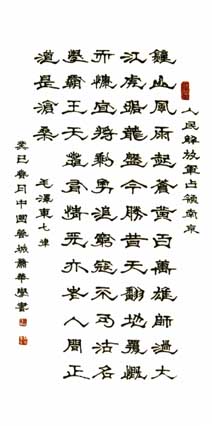 人民解放軍占領南京
鐘山風雨起蒼黄百萬雄師過大
江虎踞龍盤今勝昔天翻地覆慨
而慷宜將剩勇追窮寇不可沽名
學霸王天若有情天亦老人間正
道是滄桑
毛澤東七律
癸巳春月中國管城蕭華學書